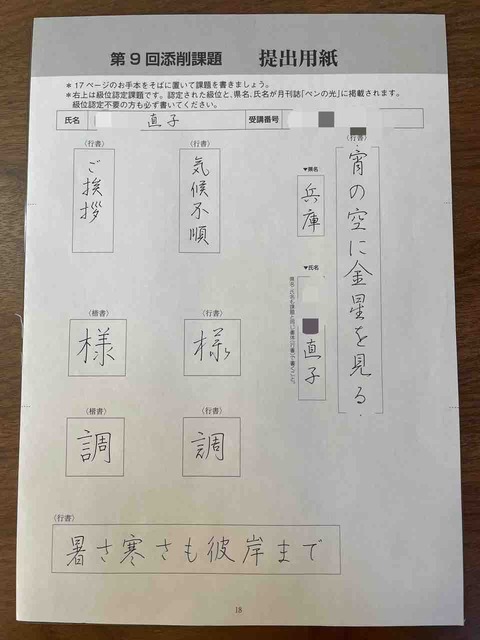 第9回添削課題 提出用紙
＊17ページのお手本をそばに置いて課題を書きましょう。
＊右上は級位認定課題です。認定された級位と、県名、氏名が月刊誌「ペンの光」に掲載されます。
級位認定不要の方も必ず書いてください。
氏名 直子 受講番号
〈行書〉
宵の空に金星を見る.
▼県名
兵庫
▼氏名
直子
県名・氏名も課題と同じ書体（行書）で書くこと。
〈行書〉
気候不順
〈行書〉
ご挨拶
〈行書〉
様
〈楷書〉
様
〈行書〉
調
〈楷書〉
調
〈行書〉
暑さ寒さも彼岸まで
18